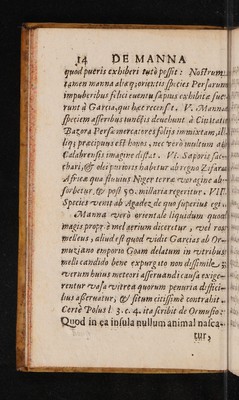 14 DE MANNA
quod pueris exhiberi tutò possit: Nostrum
tamen manna aliaq; orientis species Persarum
impuberibus felici euentu sæpius exhibitæ fue
runt à Garcia, qui hæc recenset. V. Mannæ
speciem asseribus tunesis deuehunt à Ciuitate
Bazora Persæ mercatores folijs immixtam, ill
liq; precipuus est honos, nec verò multum ab
Calabrensis imagine distat. VI. Saporis sac-
chari, & olei puriois habetur ab regno Zifara
Africæ qua fluuius Niger terræ voragine ab-
sorbetur, & post 30. milliaria regeritur. VII.
Species venit ab Agadez, de quo superius egi.
Manna verò orientale liquidum quod
magis propr. è mel aerium diceretur, vel ros
melleus, aliud est quod vidit Garcias ab Or-
muziano emporio Goam delatum in vtribus
melli candido bene expurgato non dissimile,
verum huius meteori asseruandi causa exige-
rentur vasa vitrea quorum penuria difficil-
lius asseruatur, & situm citissimè contrahit.
Certè Polus l 3. c. 4. ita scribit de Ormusio:
Quod in ea insula nullum animal nasca-
tur,